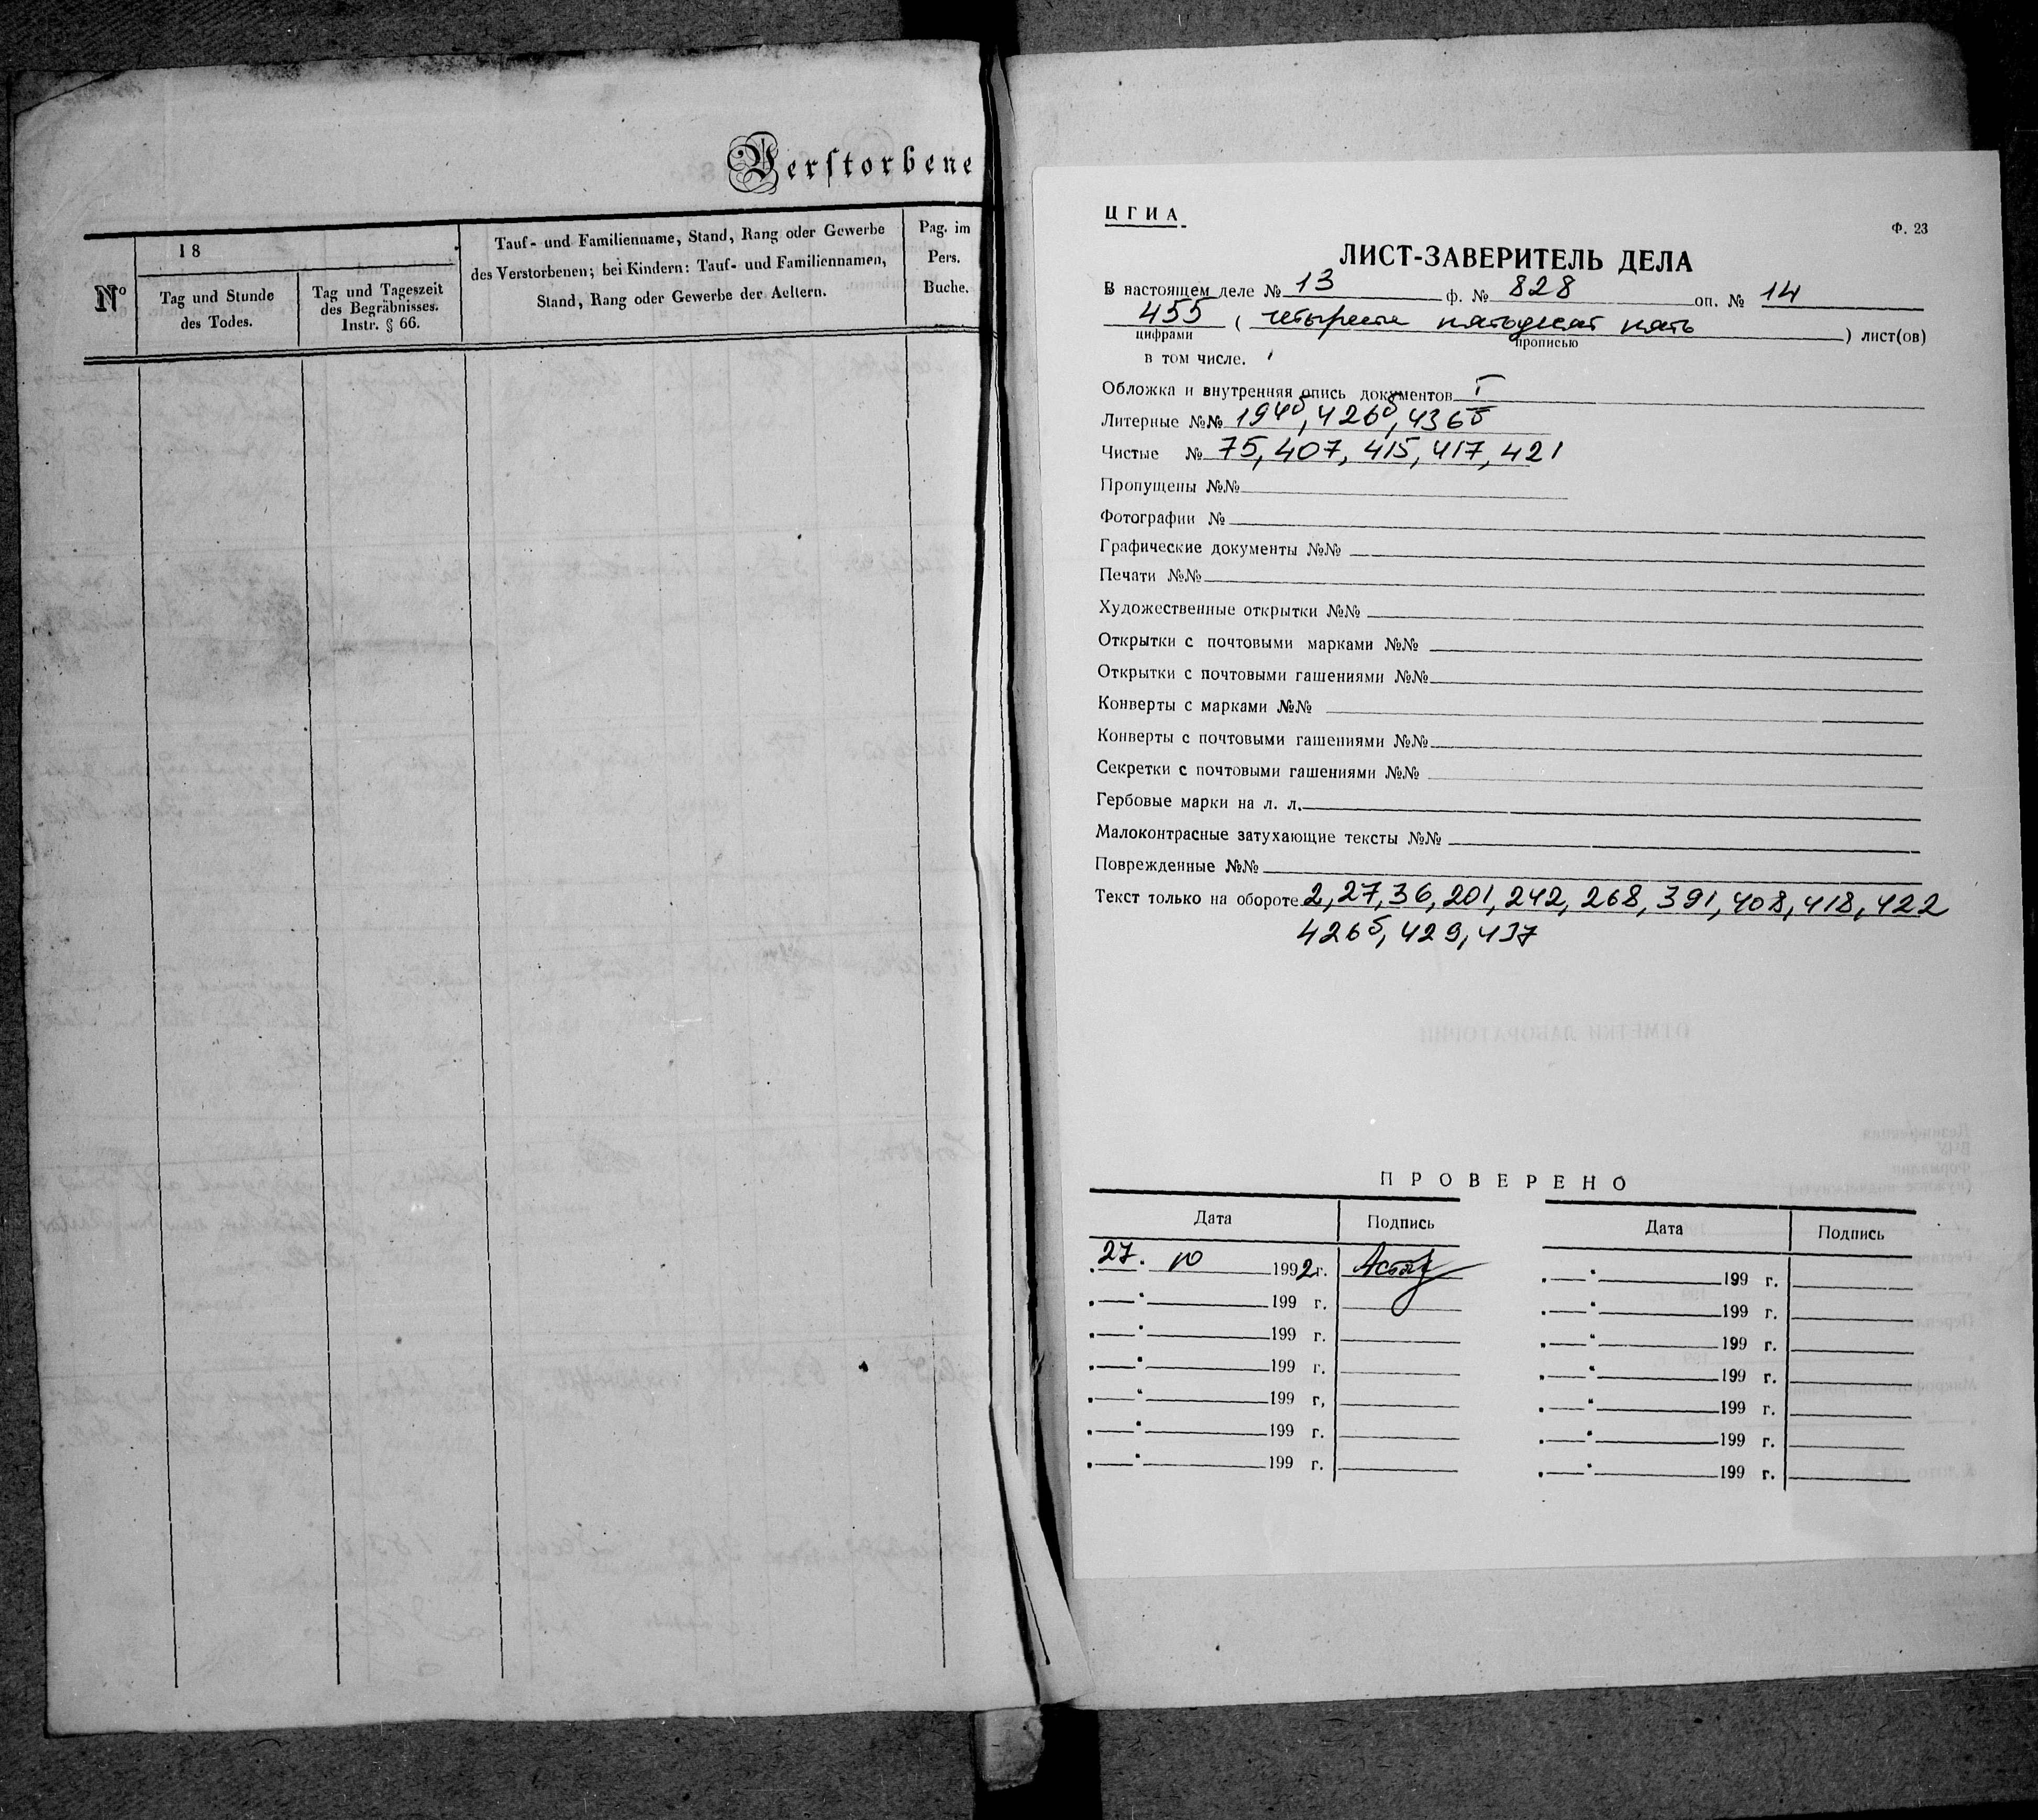 Verstorbene
Nº
18
Tag und Stunde
des Todes.
Tag und Tageszeit
des Begräbnisses.
Instr. § 66.
Tauf- und Familienname, Stand, Rang oder Gewerbe
des Verstorbenen; bei Kindern: Tauf- und Familiennamen,
Stand, Rang oder Gewerbe der Aeltern.
Pag. im
Pers.
Buche.
ЦГИА.
Ф. 23
ЛИСТ-ЗАВЕРИТЕЛЬ ДЕЛА
В настоящем деле № 13 ф. № 828 оп. № 14
455 ( четыреста пятьдесят пять ) лист(ов)
цифрами прописью
в том числе.
Обложка и внутренняя опись документов I
Литерные №№ 194б, 426б, 436б
Чистые № 75, 407, 415, 417, 421
Пропущены №№
Фотографии №
Графические документы №№
Печати №№
Художественные открытки №№
Открытки с почтовыми марками №№
Открытки с почтовыми гашениями №№
Конверты с марками №№
Конверты с почтовыми гашениями №№
Секретки с почтовыми гашениями №№
Гербовые марки на л. л.
Малоконтрасные затухающие тексты №№
Поврежденные №№
Текст только на обороте 2, 27, 36, 201, 242, 268, 391, 408, 418, 422
426б, 429, 437
ПРОВЕРЕНО
Дата Подпись Дата Подпись
27. 10 1992 г. 199 г.
199 г. 199 г.
199 г. 199 г.
199 г. 199 г.
199 г. 199 г.
199 г. 199 г.
199 г. 199 г.